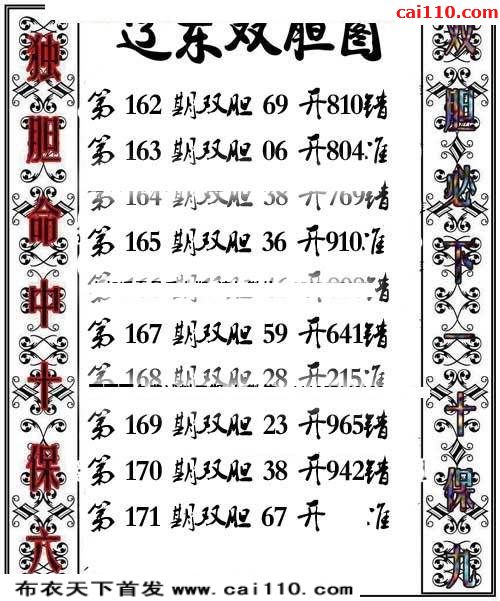 cai110.com
辽东双胆图
独胆命中十保六
第 162 期双胆 69 开810错
第 163 期双胆 06 开804准
第 164 期双胆 38 开769错
第 165 期双胆 36 开910准
错
第 167 期双胆 59 开641错
第 168 期双胆 28 开215准
第 169 期双胆 23 开965错
第 170 期双胆 38 开942错
第 171 期双胆 67 开 准
双胆必下一十保九
布衣天下首发 www.cai110.com